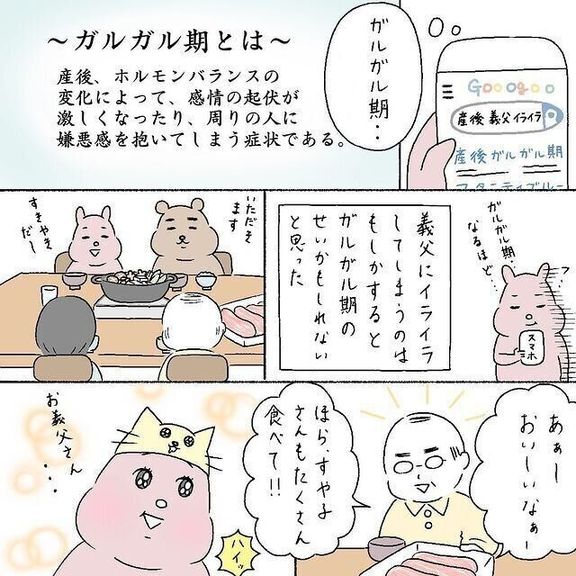 〜ガルガル期とは〜
産後、ホルモンバランスの
変化によって、感情の起伏が
激しくなったり、周りの人に
嫌悪感を抱いてしまう症状である。
ガルガル期‥
Googoo
産後 義父イライラ
産後ガルガル期
マタニティブルー
ガルガル期‥
なるほど‥
スマホ
義父にイライラ
してしまうのは
もしかすると
ガルガル期の
せいかもしれない
と思った
いただき
ます
すきやき
だ〜
あぁー
おいしいなぁー
ほら、すやこ
さんもたくさん
食べて!!
ハイッ
お義父さん
・・・